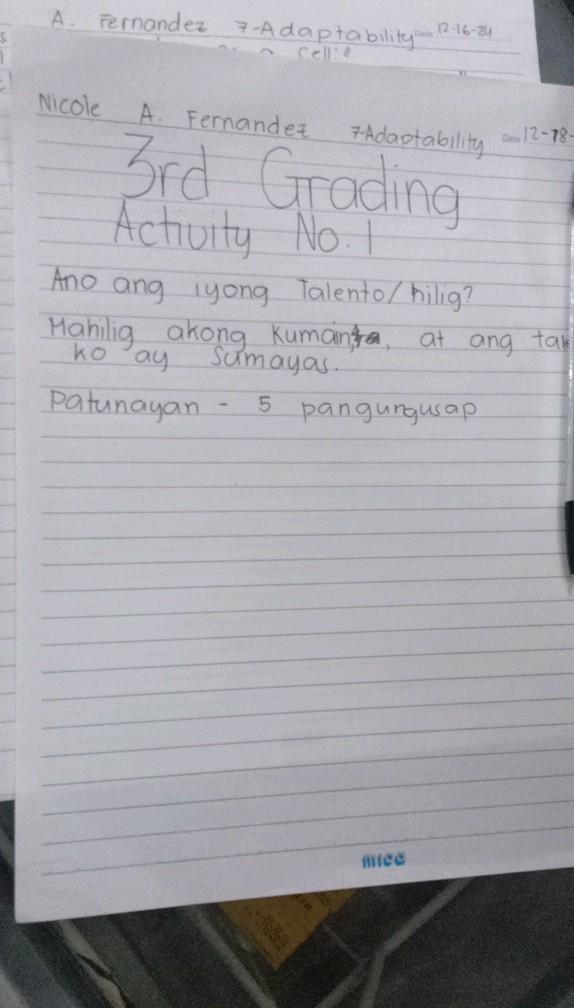 A. Fernandez 7-Adaptability Date 12-16-24
cell:
Nicole A. Fernandez 7-Adaptability Date 12-18-
3rd Grading
Activity No. 1
Ano ang iyong Talento/hilig?
Mahilig akong kumainta, at ang tal
ko ay Sumayas.
Patunayan - 5 pangungusap
micc